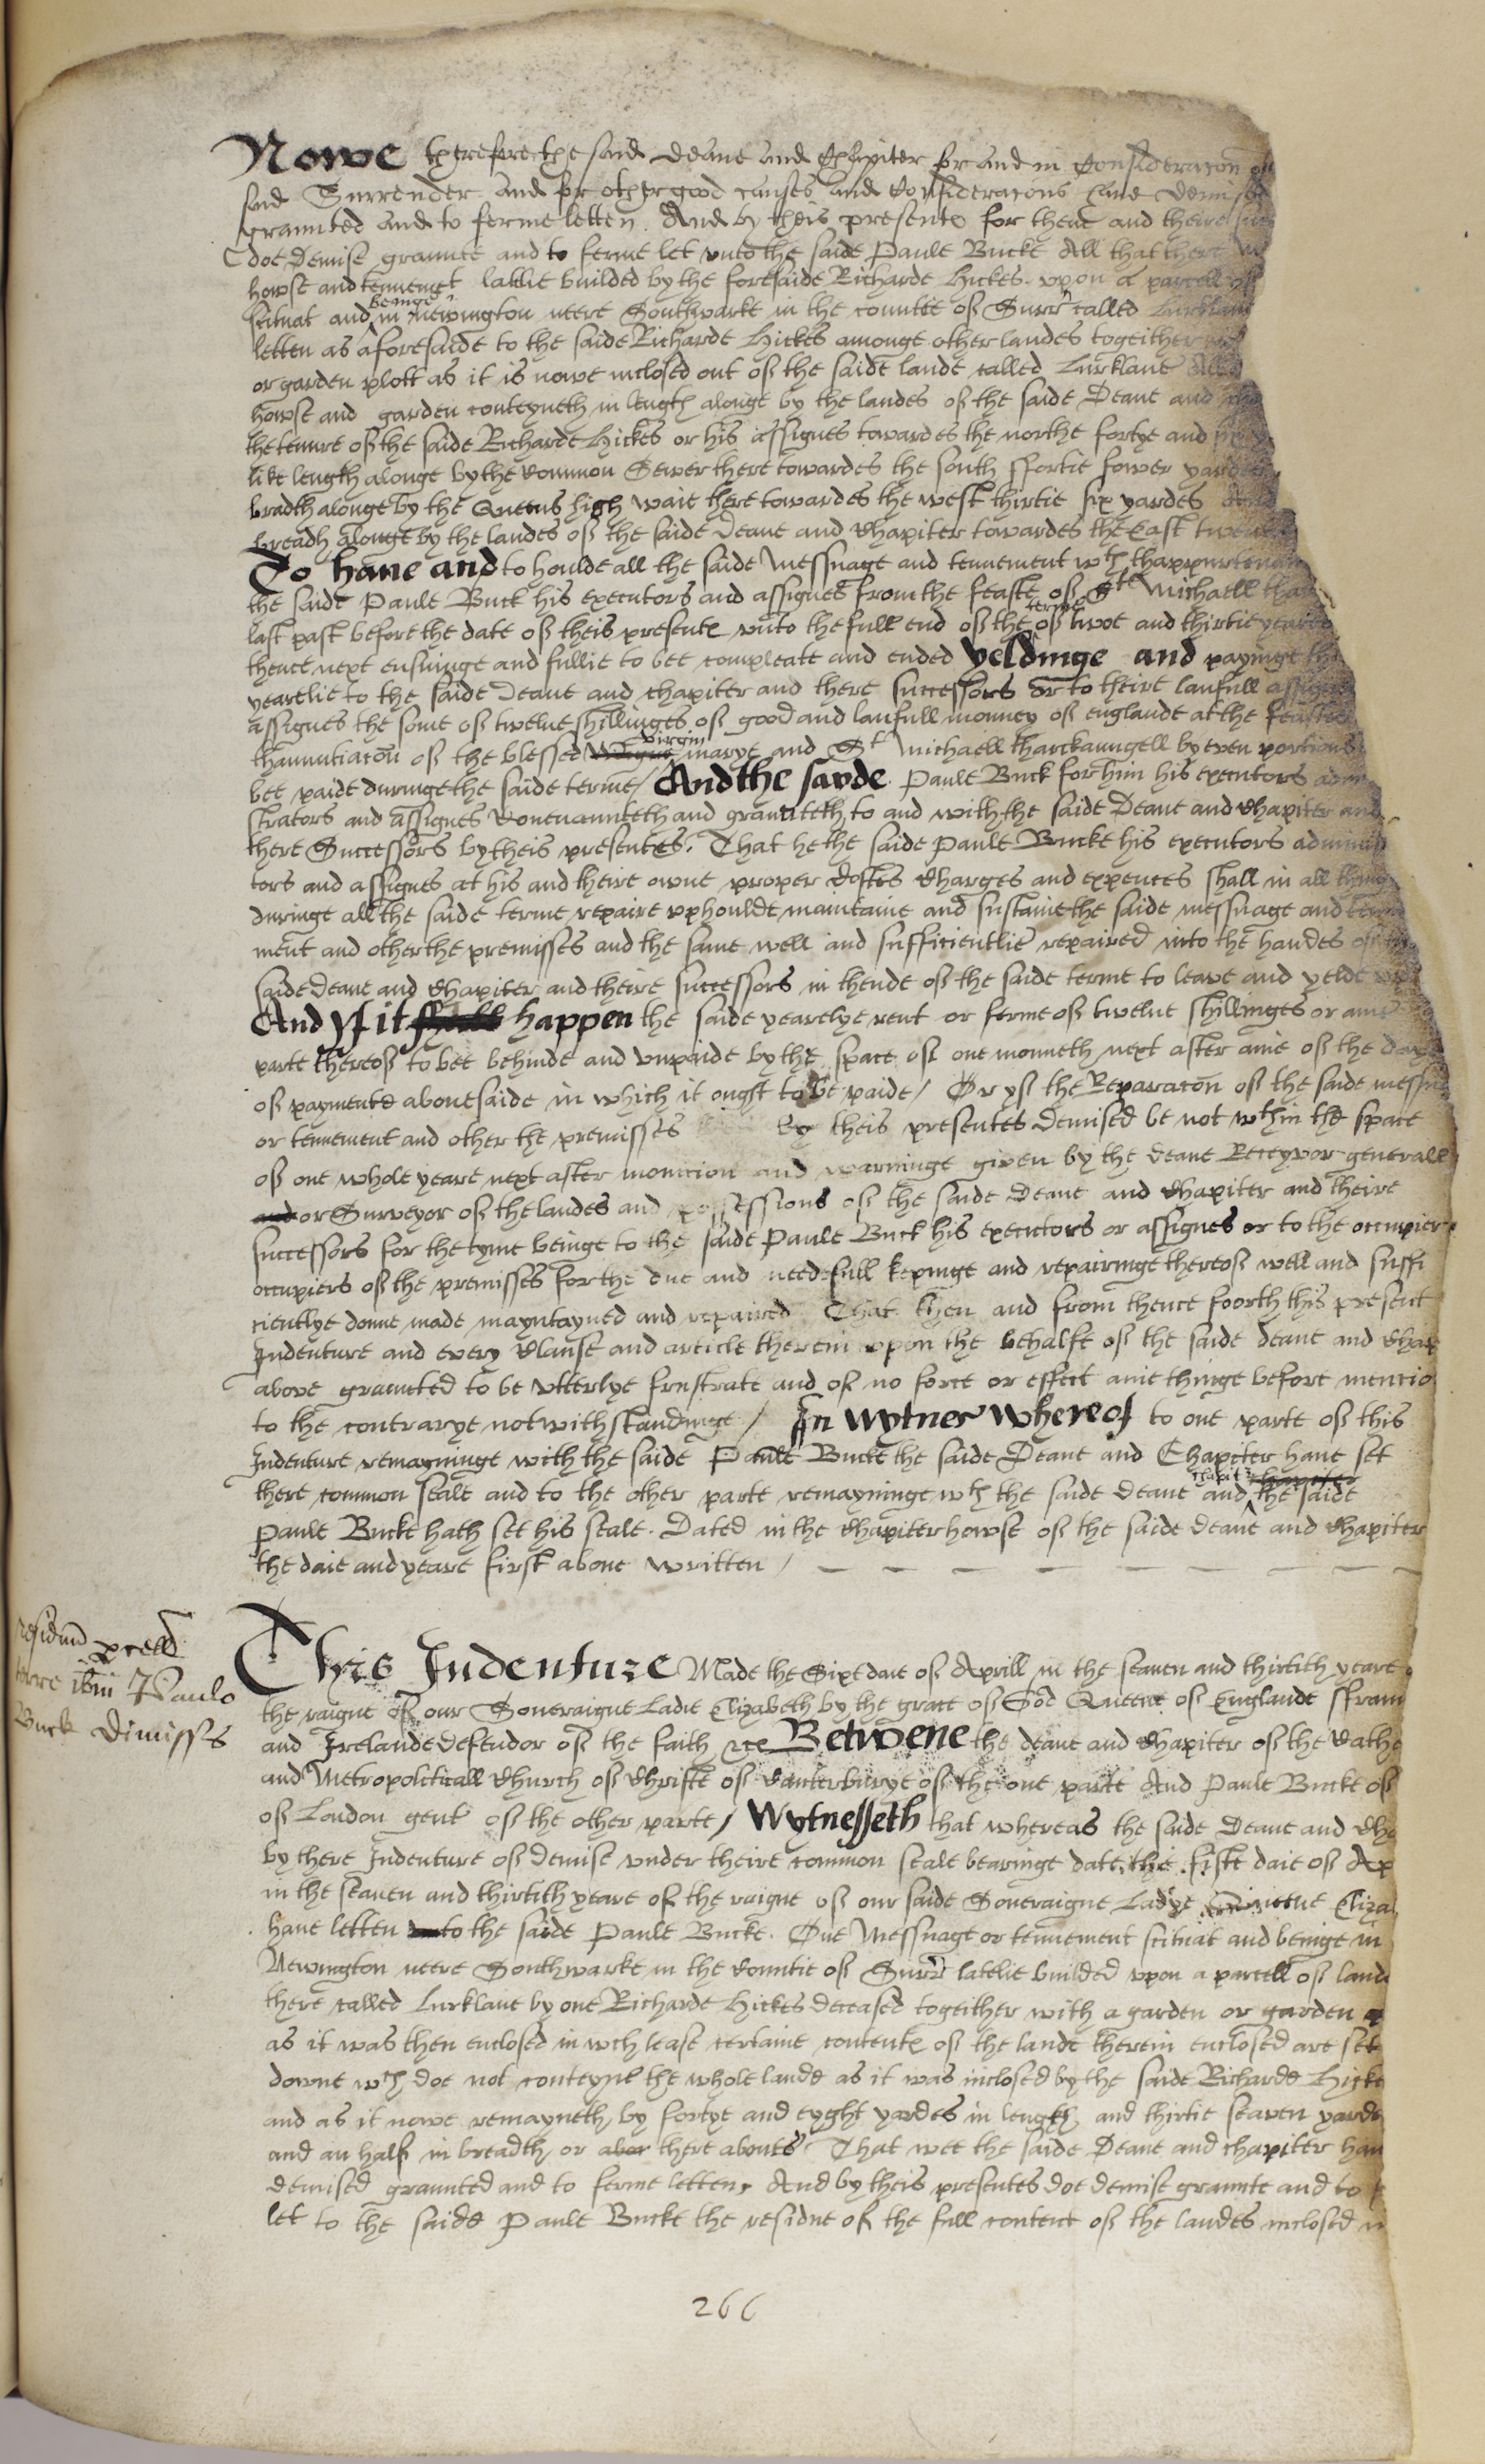 Nowe therefore the said Deane and Chapiter for and in Consideracon of
said Surrender and for other good causes and Consideracons have demised
graunted and to ferme letten. And by theis presentes for theme and theire
doe Demise graunte and to ferme let unto the saide Paule Bucke All that there
howse and tennement latlie builded by the foresaide Richarde Hickes upon a parcell of
scituat and beinge in Newington neere Southwarke in the countie of Surr called Lurklane
letten as aforesaide to the saide Richarde Hickes amonge other landes togeither
or garden plott as it is nowe inclosed out of the saide lande called Lurklane
howse and garden conteyneth in length alonge by the landes of the saide Deane and
the tenure of the saide Richarde Hickes or his assignes towardes the northe fortye and
like length alonge by the Common Sewer there towardes the south ffortie fower yardes
bradth alonge by the Queens high waie there towardes the west thirtie six yardes And
breadh alonge by the landes of the saide Deane and Chapiter towardes the East
To have and to houlde all the saide Messuage and tennement wth thappurtenan
the saide Paule Buck his executors and assignes from the feaste of Ste Michaell
last past before the date of theis presentes unto the full end of the terme of twoe and thirtie yeares
thence next ensuinge and fullie to bee compleate and ended Yeldinge and payinge
yearelie to the saide Deane and chapiter and there successors or to theire laufull assignes
assignes the some of twelve shillinges of good and laufull monney of englande at the feastes
thannuntiacon of the blessed virgin marye and St Michaell tharckaungell by even portions
bee paide duringe the saide terme / And the sayde Paule Buck for him his executors admi
strators and assignes Covenaunteth and graunteth to and with the saide Deane and Chapiter and
there Successors by theis presentes. That he the saide Paule Bucke his executors adminis
tors and assignes at his and theire owne proper Costes Charges and expences shall in all thinges
duringe all the saide terme repaire uphoulde maintaine and sustaine the saide messuage and tenne
ment and other the premisses and the same well and sufficientlie repaired into the handes of
saide Deane and Chapiter and theire successors in thende of the saide terme to leave and yelde up
And Yf it shall happen the saide yearelye rent or ferme of twelve shillinges or anie
parte thereof to bee behinde and unpaide by the space of one monneth next after anie of the daies
of payment abovesaide in which it ought to be paide / Or yf the Reparacon of the saide messua
or tennement and other the premisses by theis presentes Demised be not wthin the space
of one whole yeare next after monicion and warninge given by the Deane Receyvor generall
and or Surveyor of the landes and possessions of the saide Deane and Chapiter and theire
successors for the tyme beinge to the saide Paule Buck his executors or assignes or to the occupier
occupiers of the premisses for the due and needefull kepinge and repairinge thereof well and suffi
cientlye donne made mayntayned and repaired That then and from thence foorth this present
Indenture and every Clause and article therein upon the behalfe of the saide deane and Chap
above graunted to be utterlye frustrate and of no force or effect anie thinge before mencio
to the contrarye notwithstandinge / In Wytnes Whereof to one parte of this
Indenture remayninge with the saide Paule Bucke the saide Deane and Chapiter have set
there common seale and to the other parte remayninge wth the saide deane and chapiter the saide
Paule Bucke hath set his seale. Dated in the Chapiter howse of the saide deane and Chapiter
the daie and yeare first above written /
residuu pcell
terre ibm Paulo
Buck Dimiss
This Indenture Made the Sixe daie of Aprill in the seaven and thirtith yeare
the raigne of our Soveraigne Ladie Elizabeth by the grace of God Queene of Englande ffraun
and Irelande defendor of the faith &c Betwene the deane and Chapiter of the Cathe
and Metropoliticall Church of Christe of Canterburye of the one parte And Paule Bucke of
of London gent of the other parte / Wytnesseth that whereas the saide Deane and Cha
by there Indenture of demise under theire common seale bearinge date the fifte daie of Ap
in the seaven and thirtith yeare of the raigne of our saide Soveraigne Ladye Queene Eliza
have letten to the saide Paule Bucke. One Messuage or tennement scituat and beinge in
Newington neere Southwarke in the Countie of Surr latelie builded upon a parcell of lande
there called Lurklane by one Richarde Hickes deceased togeither with a garden or garden
as it was then enclosed in wch lease certaine contentes of the lande therein enclosed are set
downe wch doe not conteyne the whole lande as it was inclosed by the saide Richarde Hicke
and as it nowe remayneth by fortye and eyght yardes in length and thirtie seaven yardes
and an half in breadth or there aboutes That wee the saide Deane and chapiter have
demised graunted and to ferme letten, And by theis presentes doe demise graunte and to
let to the saide Paule Bucke the residue of the full content of the landes inclosed
266